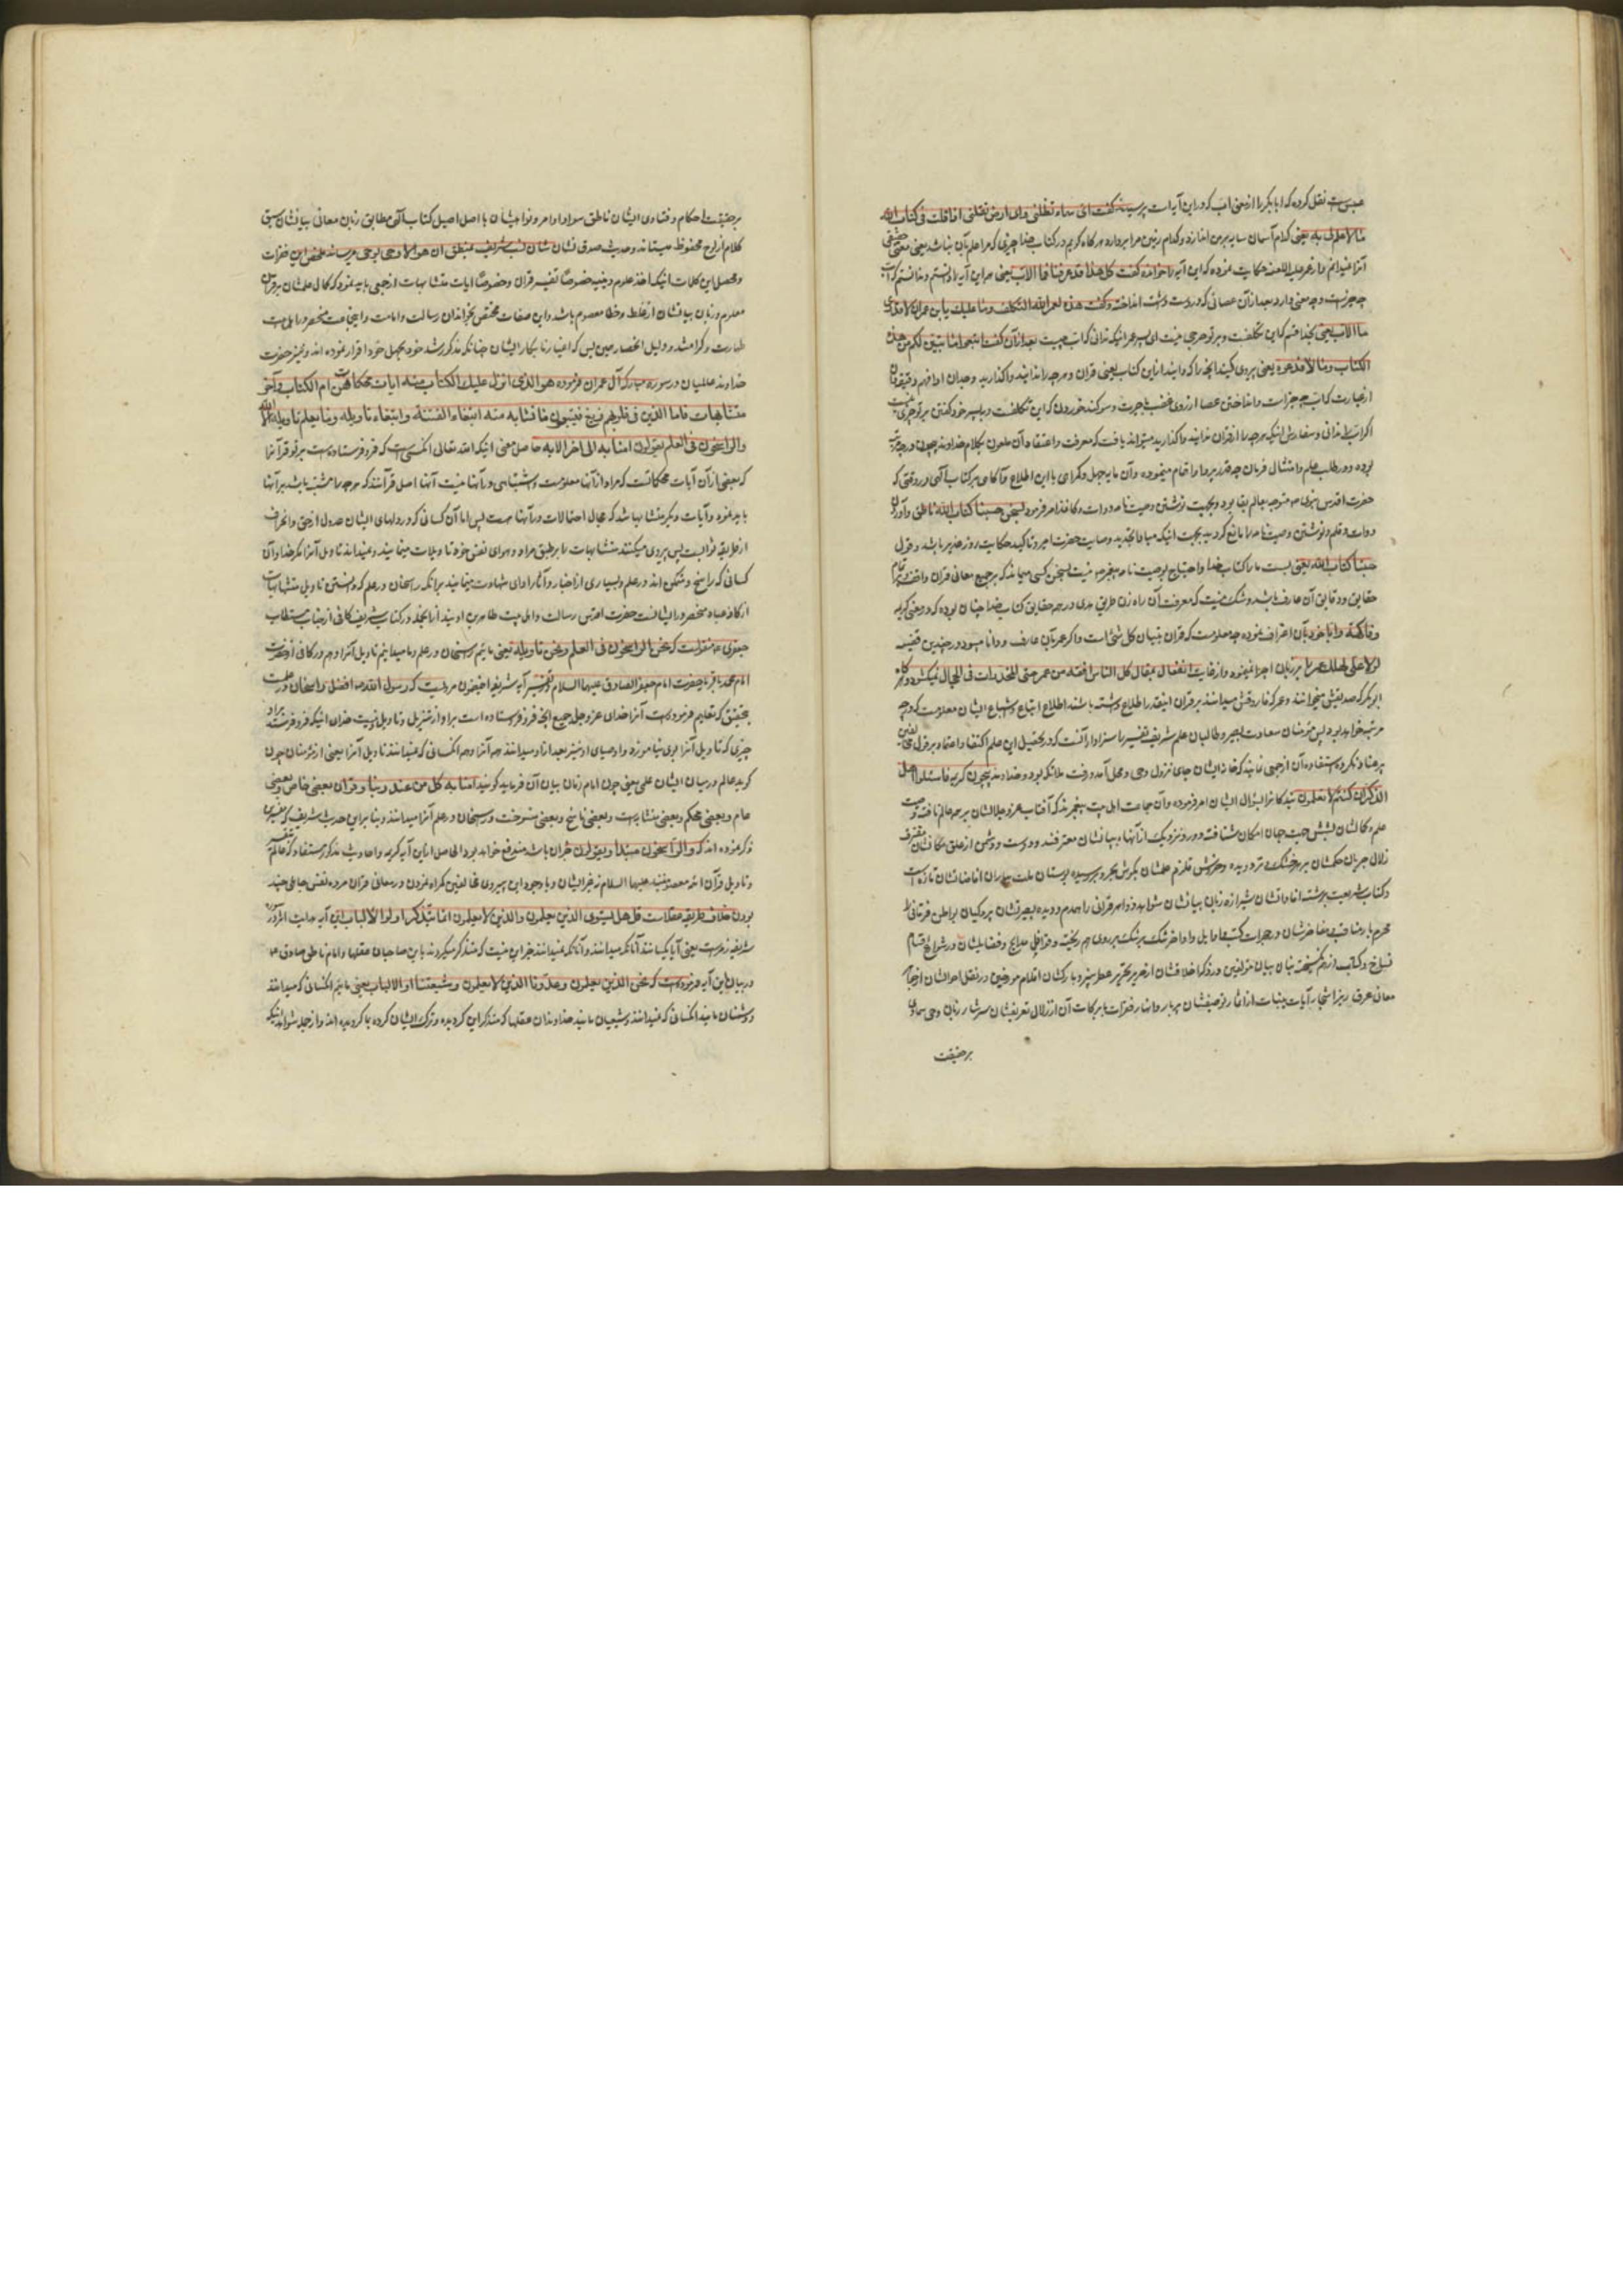 عبس‌ست نقل کرده که ابابکر را از معنی اب که در این آیه است پرسیدند گفت ای سماء تظلنی وای ارض تقلنی اذا قلت فی کتاب الله
ما لا علم لی به یعنی کدام آسمان سایه بر من اندازد و کدام زمین مرا بردارد هرگاه گویم در کتاب خدا چیزی که مرا علم بآن نباشد یعنی معنی حقیقی
آنرا ندانم و از عمر علیه اللعنه حکایت نموده که این آیه را خوانده گفت کل هذا قد عرفنا فما الاب یعنی همه این آیه را دانستم و ندانستم که اب
چه چیز است و چه معنی دارد بعد از آن عصائی که در دست داشت انداخته و گفت هذا لعمر الله التکلف وما علیک یابن عمر ان لا تدری
ما الاب یعنی بخدا قسم که این تکلفست و بر تو حرجی نیست ای پسر عمر اینکه ندانی که اب چیست بعد از آن گفت اتبعوا ما تبین لکم من هذا
الکتاب وما لا فدعوه یعنی پیروی کنید آنچه را که دانید از این کتاب یعنی قرآن و هرچه را ندانید واگذارید
از عبارت که اب چه چیز است و انداختن عصا از روی غضب و سوگند خوردن که این تکلفست و به پسر خود گفتن بر تو حرجی نیست
اگر اب را ندانی و سفارش اینکه هر چه را از قرآن ندانید واگذارید میتواند یافت که معرفت و اعتقاد آن ملعون بکلام خداوند بیچون در چه مرتبه
بوده و در طلب علم و امتثال فرمان چه قدر پروا و اقدام مینموده و آن مایه جهل و گمراهی با این اطلاع و آگاهی بر کتاب آلهی در وقتی که
حضرت اقدس نبوی ص متوجه عالم بقا بود و بجهت نوشتن وصیت نامه دوات و کاغذ امر فرمود بسخن حسبنا کتاب الله ناطق و آوردن
دوات و قلم و نوشتن وصیت نامه را مانع گردید بجهت اینکه مبادا تجدید وصایت حضرت امیر و تاکید حکایت روز غدیر باشد و قول
حسبنا کتاب الله یعنی بست ما را کتاب خدا و احتیاج بوصیت نامه پیغمبر ص نیست بسخن کسی میماند که بر جمیع معانی قرآن واقف و بتمام
حقایق و دقایق آن عارف باشد و شک نیست که معرفت آن راه زن طریق هدی در جه حقایق کتاب خدا چنان بوده که در معنی کریمه
وفاکهة وابا خود بآن اعتراف نموده چه معلومست که قرآن تبیان کل شیٔ است و اگر عمر بآن عارف و دانا میبود در چندین قضیه
لولا علی لهلک عمر را بر زبان اجرا نمینمود و از غایت انفعال بمقال کل الناس افقه من عمر حتی المخدرات فی الحجال نمیگشود و گاه
ابوبکر که صدیقش میخوانند و عمر که فاروقش میدانند بر قرآن اینقدر اطلاع داشته باشند اطلاع اتباع و اشیاع ایشان معلومست که در چه
مرتبه خواهد بود پس مؤمنان سعادت بصیر و طالبان علم شریف تفسیر را سزاوار آنست که در تحصیل این علم اکتفا و اعتماد بر قول
بر عناد نکرده استفاده آن از جمعی نمایند که خانه ایشان جای نزول وحی و محل آمد و رفت ملائکه بود و خداوند بیچون کریمه فاسئلوا اهل
الذکر ان کنتم لا تعلمون بندگانرا بسؤال ایشان امر فرموده و آن جماعت اهل بیت پیغمبرند که آفتاب عز و جلالشان بر همه عالم تافته وصیت
علم و کمالشان بشش جهت جهان امکان شتافته و دور و نزدیک از آنها به بیانشان معترفند و دوست و دشمن
زلال جریان حکمشان بر هر خشک و تر دویده و خروش قلزم علمشان بگوش بحر و بر رسیده بوستان ملت بباران افاضاتشان تازه است
وکتاب شریعت برشته افاداتشان شیرازه زبان بیانشان شواهد و اوامر قرآنی را همدم و دیده بصیرتشان پردگیان بواطن فرقانی را
محرم
نساخ وکتاب
معانی عرق ریز اشجار آیات بینات از امطار توصیفشان پر بار و انهار فقرات بابرکات آن از زلال تعریفشان سرشار زبان وحی سماوی
بر حقیقت
بر حقیقت احکام و فتاوی ایشان ناطق سواد اوامر و نواهیشان با اصل اصیل کتاب آلهی مطابق زبان معانی بیانشان سبق
کلام از لوح محفوظ میستاند و حدیث صدق نشان شان لب شریف بمنطق ان هو الا وحی یوحی میرساند ملخص این فقرات
و محصل این کلمات اینکه اخذ علوم دینیه خصوصًا تفسیر قرآن و خصوصًا آیات متشابهات از جمعی باید نمود که کمال علمشان بر همه کس
معلوم و زبان بیانشان از غلط و خطا معصوم باشد و این صفات مختص بخاندان رسالت و امامت و این جماعت منحصر در اهل بیت
طهارت و کرامتند و دلیل انحصار همین بس که اغیار نابکار ایشان چنانکه مذکور شد خود بجهل خود اقرار نموده اند و نیز حضرت
خداوند عالمیان در سوره مبارکه آل عمران فرموده هو الذی انزل علیک الکتاب منه ایات محکمات هن ام الکتاب و آخر
متشابهات فاما الذین فی قلوبهم زیغ فیتبعون ما تشابه منه ابتغاء الفتنة وابتغاء تاویله وما یعلم تاویله الا الله
والراسخون فی العلم یقولون امنا به الی اخر الایه حاصل معنی اینکه الله تعالی آنکسی ست که فرو فرستاده است بر تو قرآنرا
که بعضی از آن آیات محکماتست که مراد از آنها معلومست و اشتباهی در آنها نیست آنها اصل قرآنند که هر چه را مشتبه باشد بر آنها
باید نمود و آیات دیگر متشابهاتند که مجال احتمالات در آنها هست پس اما آن کسانی که در دلهای ایشان عدول از حق و انحراف
از طریقه ثوابست پس پیروی میکنند متشابهات را بر طبق مراد و هوای نفس خود تاویلات مینمایند و نمیدانند تاویل آنرا مگر خدا و آن
کسانی که راسخ و متمکن اند در علم و بسیاری از اخبار و آثار ادای شهادت مینمایند بر آنکه راسخان در علم که دانستن تاویل متشابهات
از کافه عباد منحصر در ایشانست حضرت اقدس رسالت و اهل بیت طاهرین اویند از آنجمله در کتاب شریف کافی از جناب مستطاب
جعفری ع منقولست که نحن الراسخون فی العلم و نحن نعلم تاویله یعنی مائیم راسخان در علم و ما میدانیم تاویل آنرا و هم در کافی از حضرت
امام محمد باقر یا حضرت امام جعفر الصادق علیهما السلام در تفسیر آیه شریفه باینمضمون مرویست که رسول الله ص افضل راسخان در علمست
بتحقیق که تعلیم فرموده است آنرا خدای عز و جل جمیع آنچه فرو فرستاده است بر او از تنزیل و تاویل و نیست خدای اینکه فرو فرستد بر او
چیزی که تاویل آنرا بوی نیاموزد و اوصیای او نیز بعد از او میدانند همه آنرا و همه آنکسانی که نمیدانند تاویل آنرا یعنی از مؤمنان چون
گوید عالم در میان ایشان علمی یعنی چون امام زمان بیان آن فرماید گویند امنا به کل من عند ربنا و قرآن بعضی خاص و بعضی
عام و بعضی محکم و بعضی متشابه است و بعضی ناسخ و بعضی منسوخست و راسخان در علم آنرا میدانند و بنا بر این حدیث شریف
ذکر نموده اند که والراسخون مبتدا و یقولون خبر آن باشد مندفع خواهد بود الحاصل از این آیه کریمه و احادیث مذکور مستفاد که عالم
و تاویل قرآن ائمه معصومینند علیهم السلام نه غیر ایشان و با وجود این پیروی مخالفین گمراه نمودن و در معانی قرآن مرده نفس جاهلی چند
بودن خلاف طریقه عقلاست قل هل یستوی الذین یعلمون والذین لا یعلمون انما یتذکر اولوا الالباب این آیه هدایت اثر در سوره
شریفه زمرست یعنی آیا یکسانند آنانکه میدانند و آنانکه نمیدانند جز این نیست که متذکر میگردند باین صاحبان عقلها و امام ناطق صادق ع
در بیان این آیه فرموده است که نحن الذین یعلمون و عدونا الذین لا یعلمون و شیعتنا اولو الالباب یعنی مائیم آنکسانی که میدانند
و دشمنان مایند آنکسانی که نمیدانند و شیعیان مایند خداوندان عقلها که متذکر این گردیده و ترک ایشان کرده بما گرویده اند و از جمله شواهد اینکه